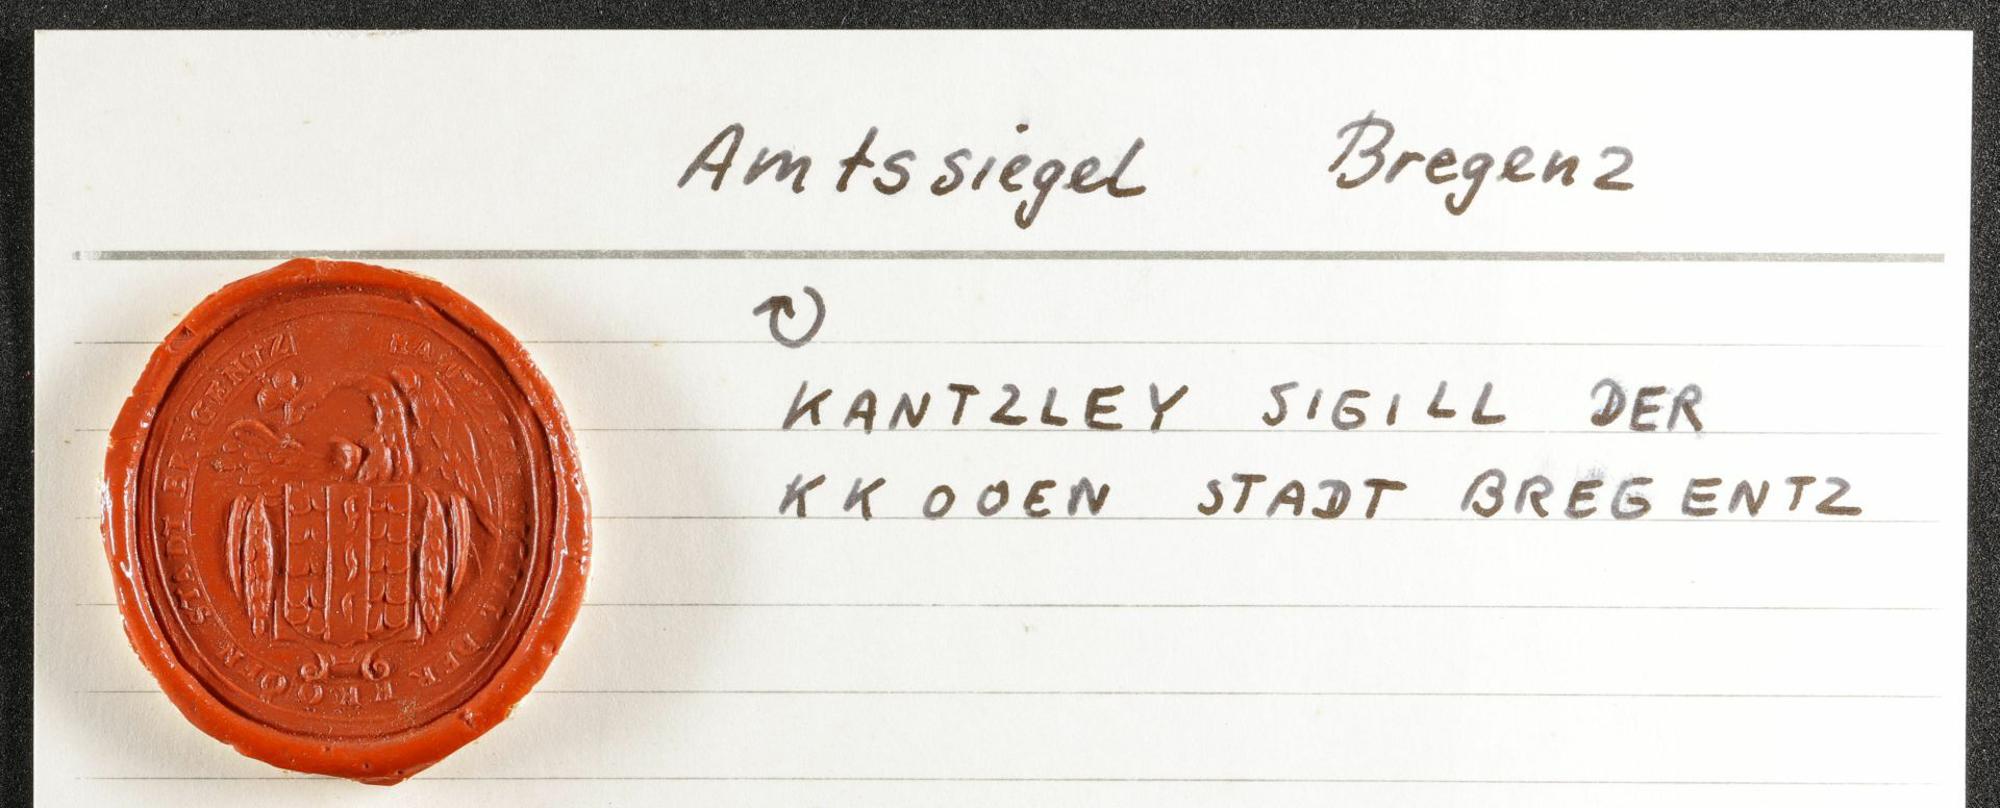 Amtssiegel Bregenz
KANTZLEY SIGILL DER
KK OOEN STADT BREGENTZ
DER KKOOEN STADT BREGENTZ